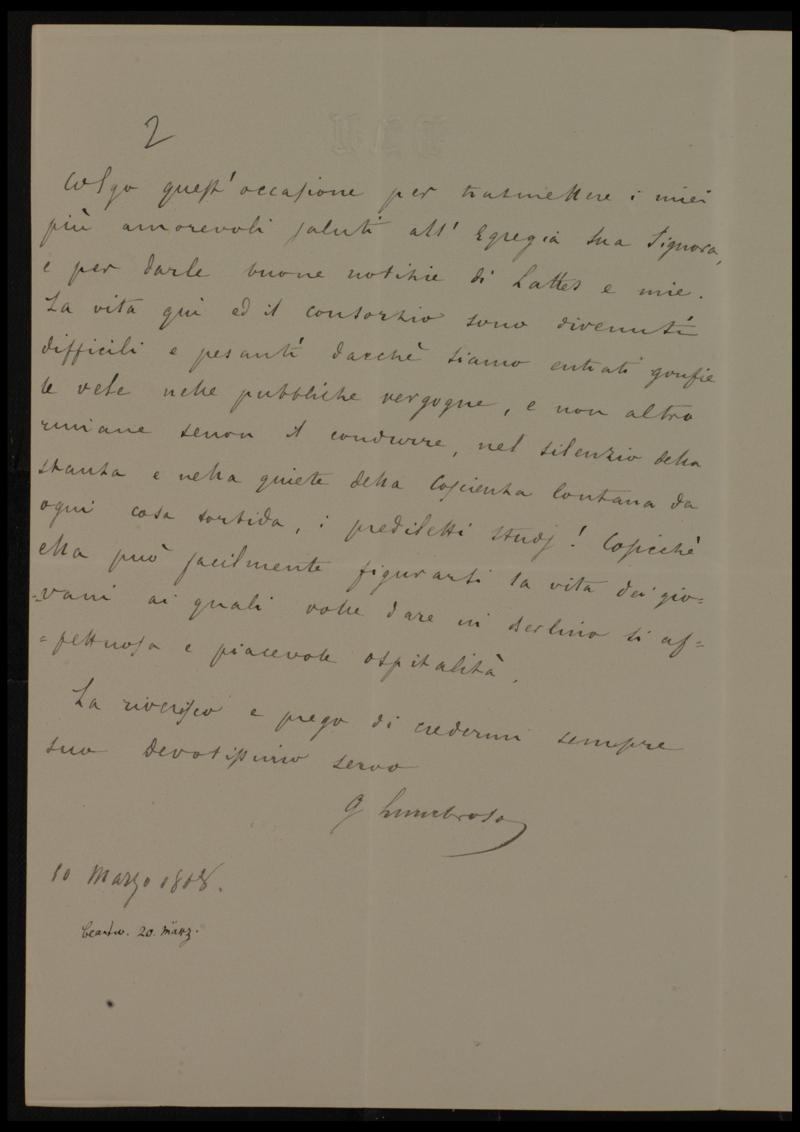 2
Colgo quest'occasione per trasmettere i miei
più amorevoli saluti all'Egregia sua Signora,
e per darle buone notizie di Lattes e mie.
La vita qui ed il consorzio sono divenuti
difficili e pesanti dacchè siamo entrati gonfie
le vele nelle pubbliche vergogne, e non altro
rimane senon il condurre, nel silenzio della
stanza e nella quiete della coscienza lontana da
ogni cosa sordida, i prediletti studj! Cosicchè
ella può facilmente figurarsi la vita dei gio=
=vani ai quali volle dare in Berlino sì af=
=fettuosa e piacevole ospitalità.
La riverisco e prego di credermi sempre
suo devotissimo servo
G Lumbroso
10 Marzo 1868.
Beantw. 20. März.